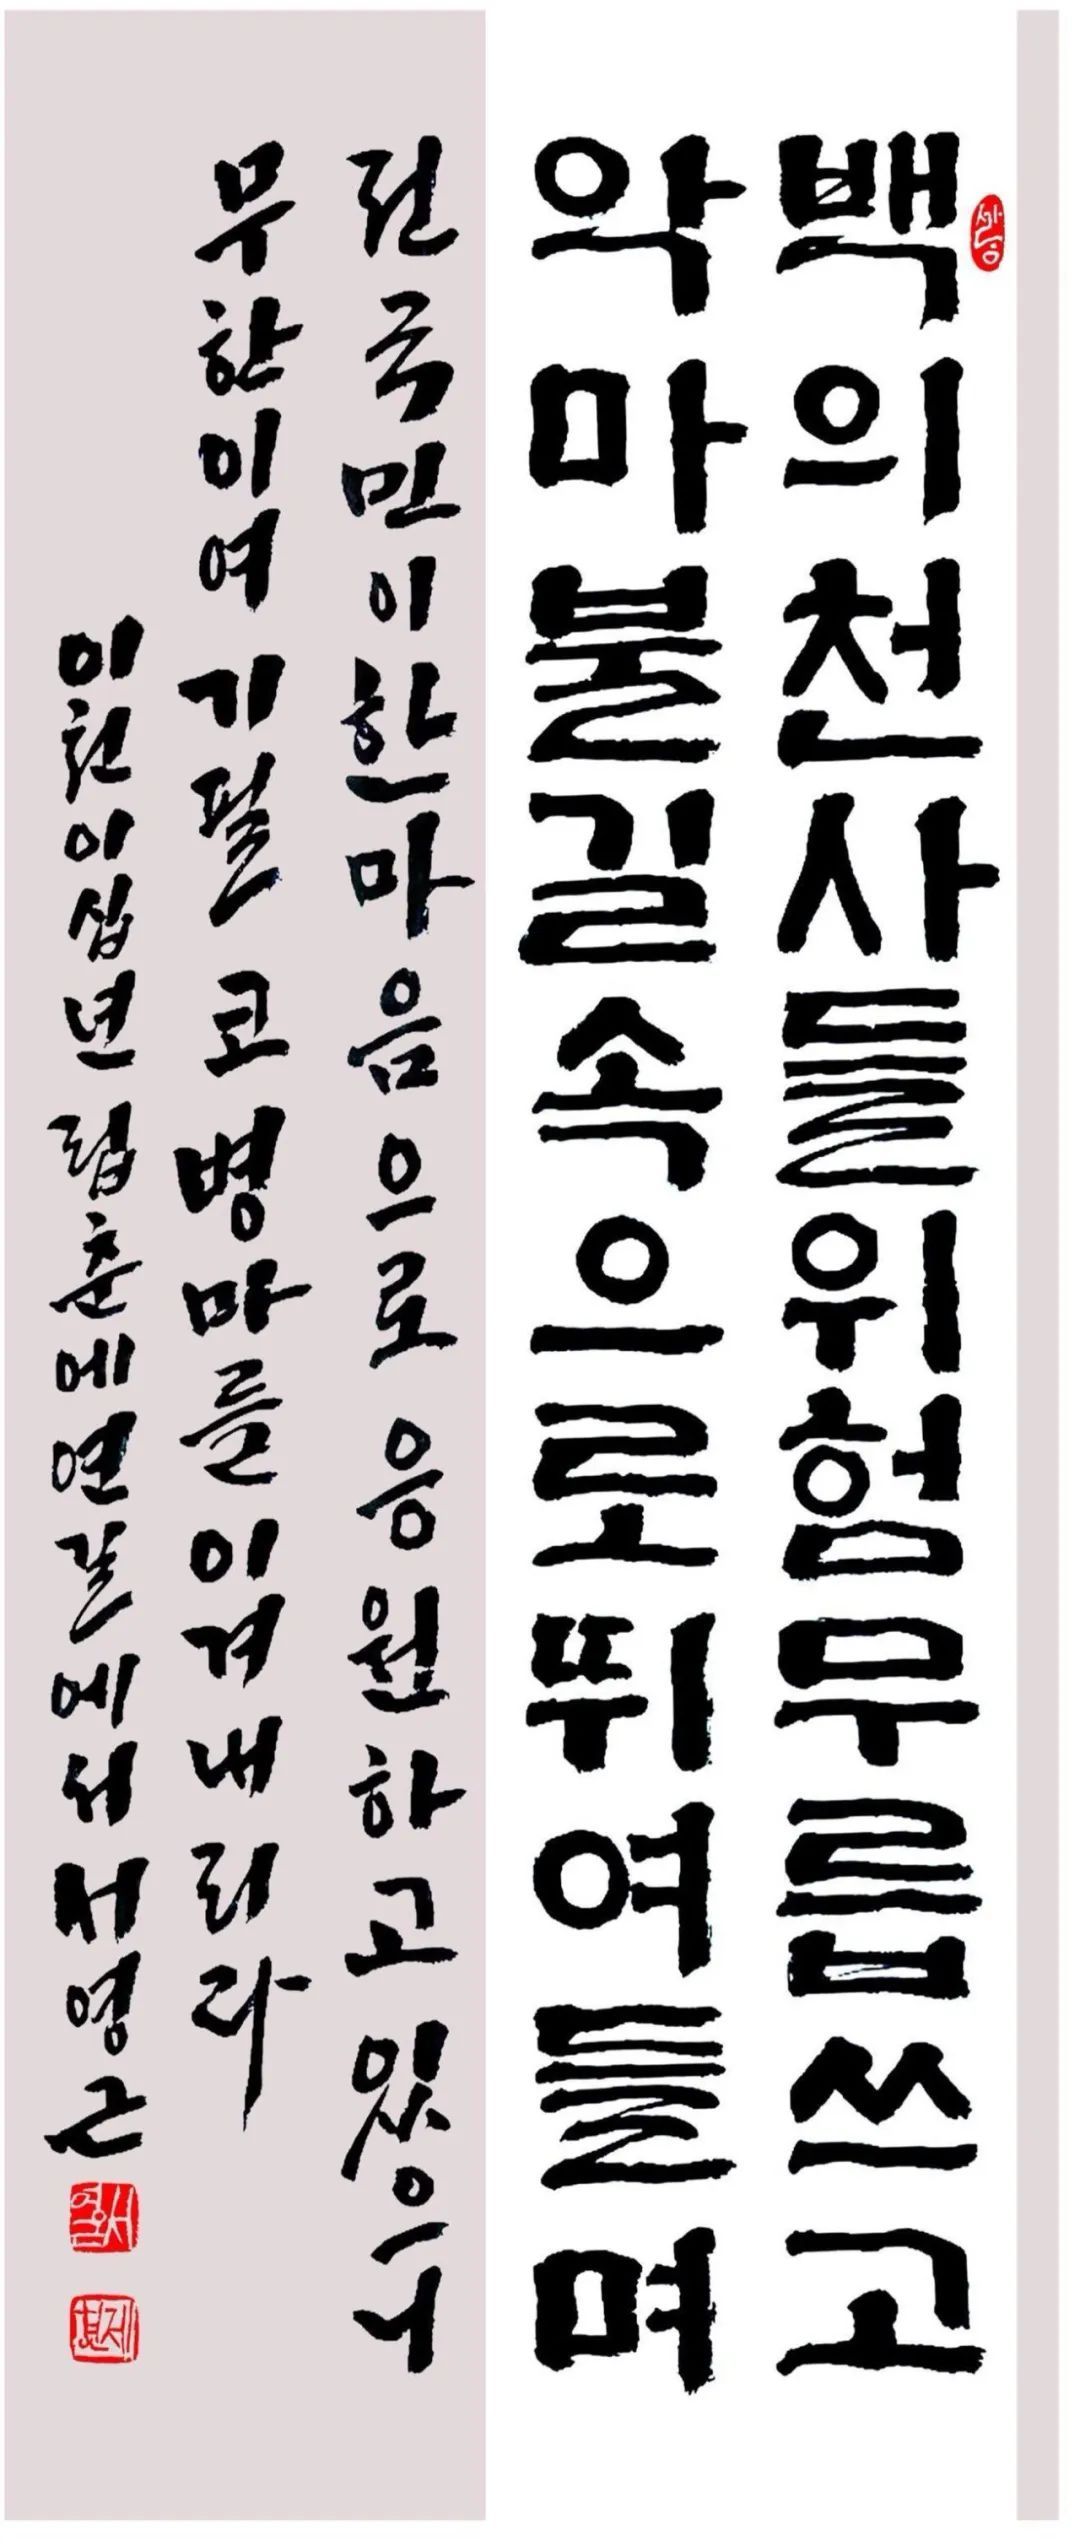 백의천사들위험무릅쓰고
악마불길속으로뛰여들며
전국민이한마음으로응원하고있으니
무한이여기필코병마를이겨내리라
이천이십년립춘에연길에서서영근
서영근